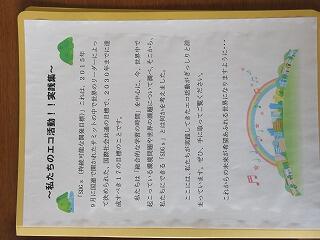 ～私たちのエコ活動！！実践集～
「SDGs（持続可能な開発目標）」これは、２０１５年
９月に国連で開かれたサミットの中で世界のリーダーによっ
て決められた、国際社会共通の目標で、２０３０年までに達
成すべき１７の目標のことです。
私たちは「総合的な学習の時間」を中心に、今、世界中で
起こっている環境問題や世界の課題について調べ、そこから、
私たちにできる「SDGs」とは何かを考えました。
ここには、私たちが実践してきたエコ活動がぎっしりと詰
まっています。ぜひ、手に取ってご覧ください。
これからの未来が希望あふれる世界になりますように・・・